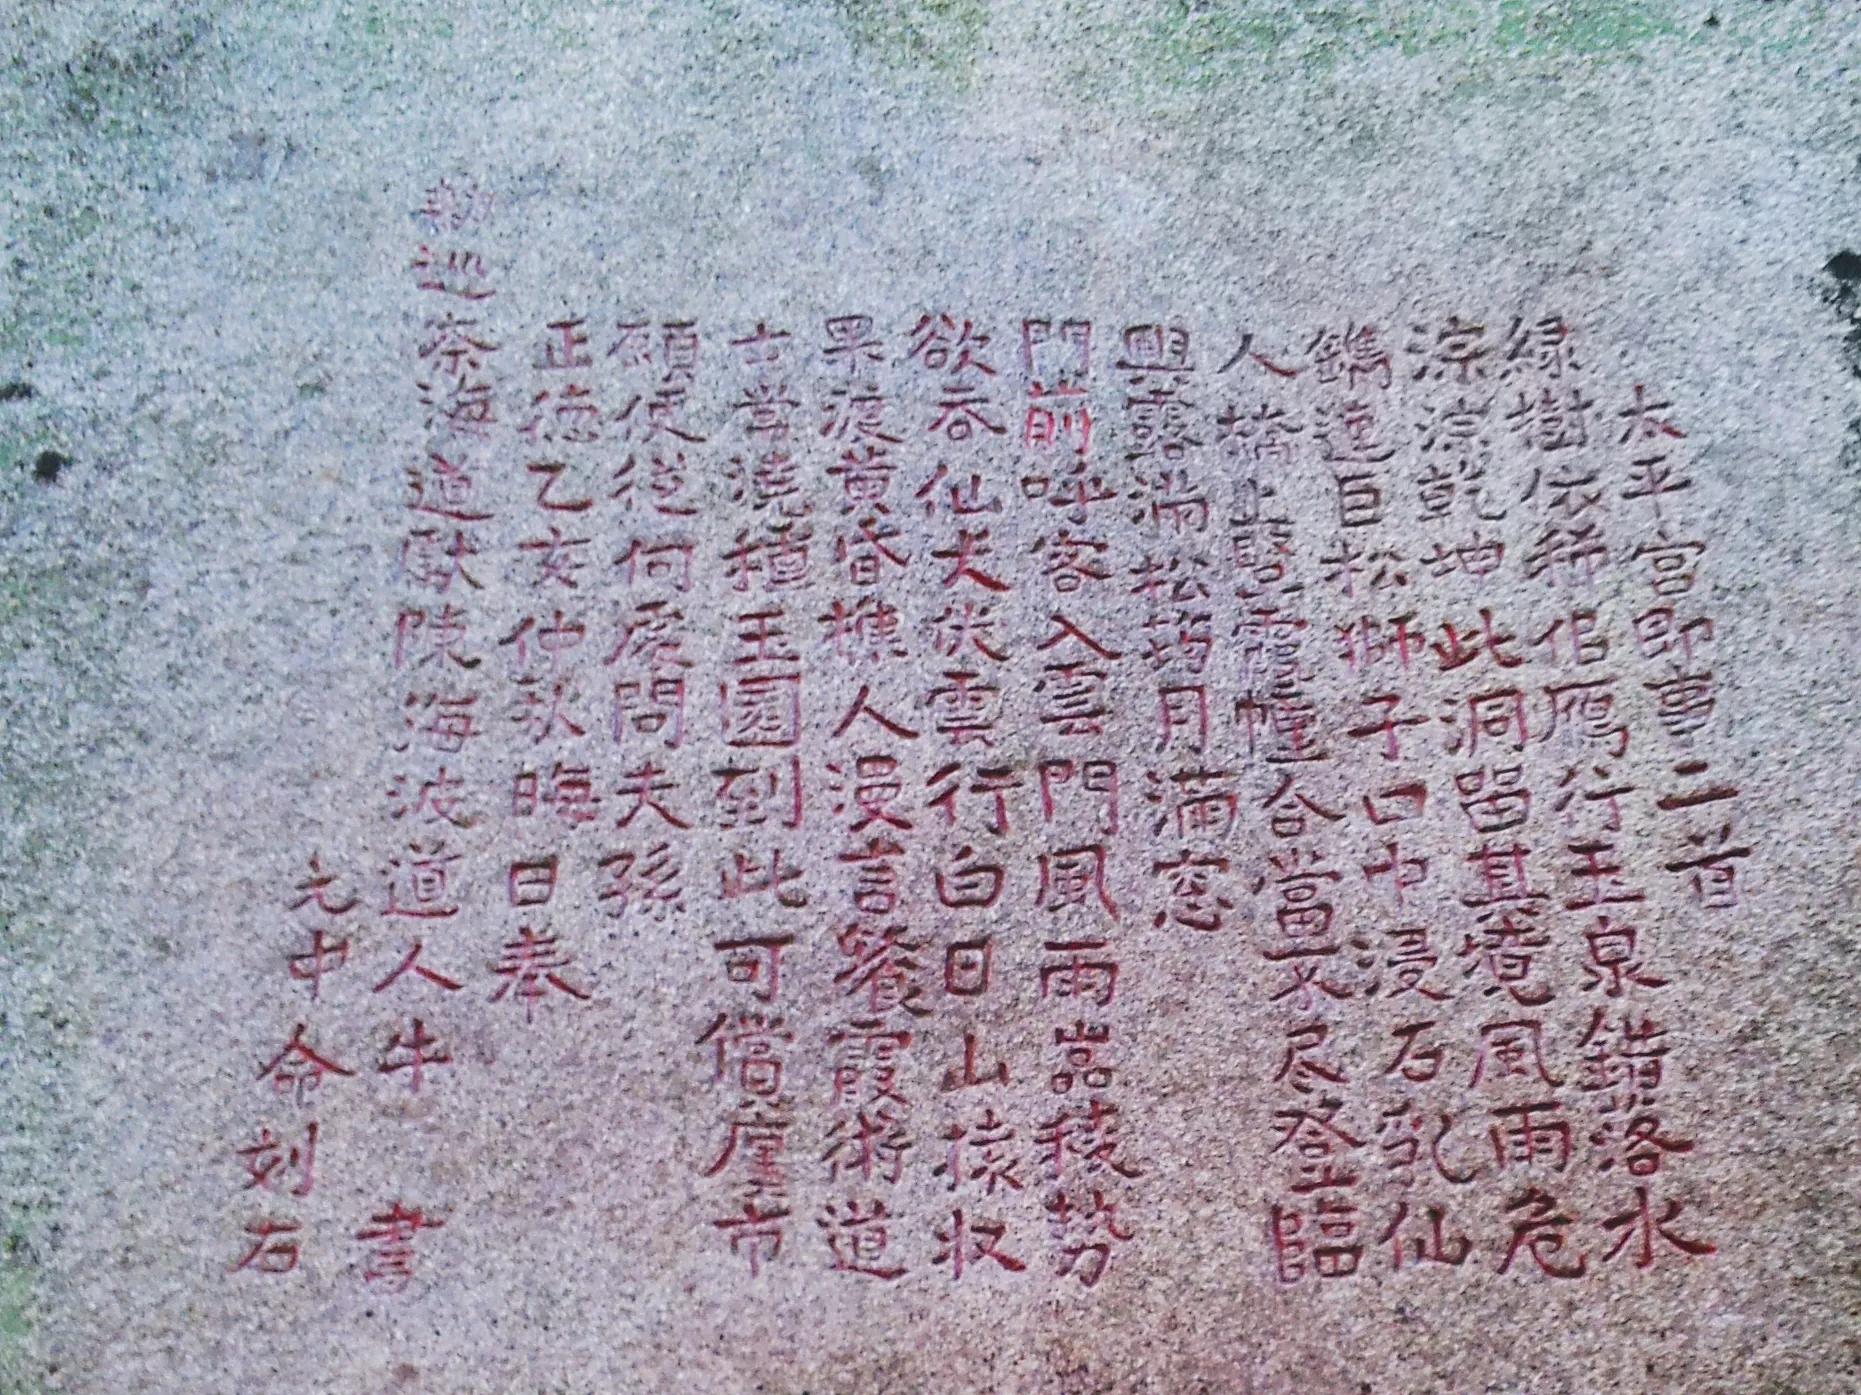 太平宮即事二首
緑樹依稀侶鴈行玉泉錯落水
淙淙乾坤此洞留其境風雨危
鐫透巨松獅子口中浸石乳仙
人橋上醫霞幢合當不尽登臨
興露滿松筠月滿窓
門前呼客入雲門風雨嵓稜勢
欲吞仙犬吠雲行白日山猿收
果疾黄昏樵人漫言餐霞術道
士當澆種玉園到此可償廛市
願便從何處問夫孫
正徳乙亥仲秋晦日奉
勅巡察海道獻陳海波道人牛 書
元中命刻石